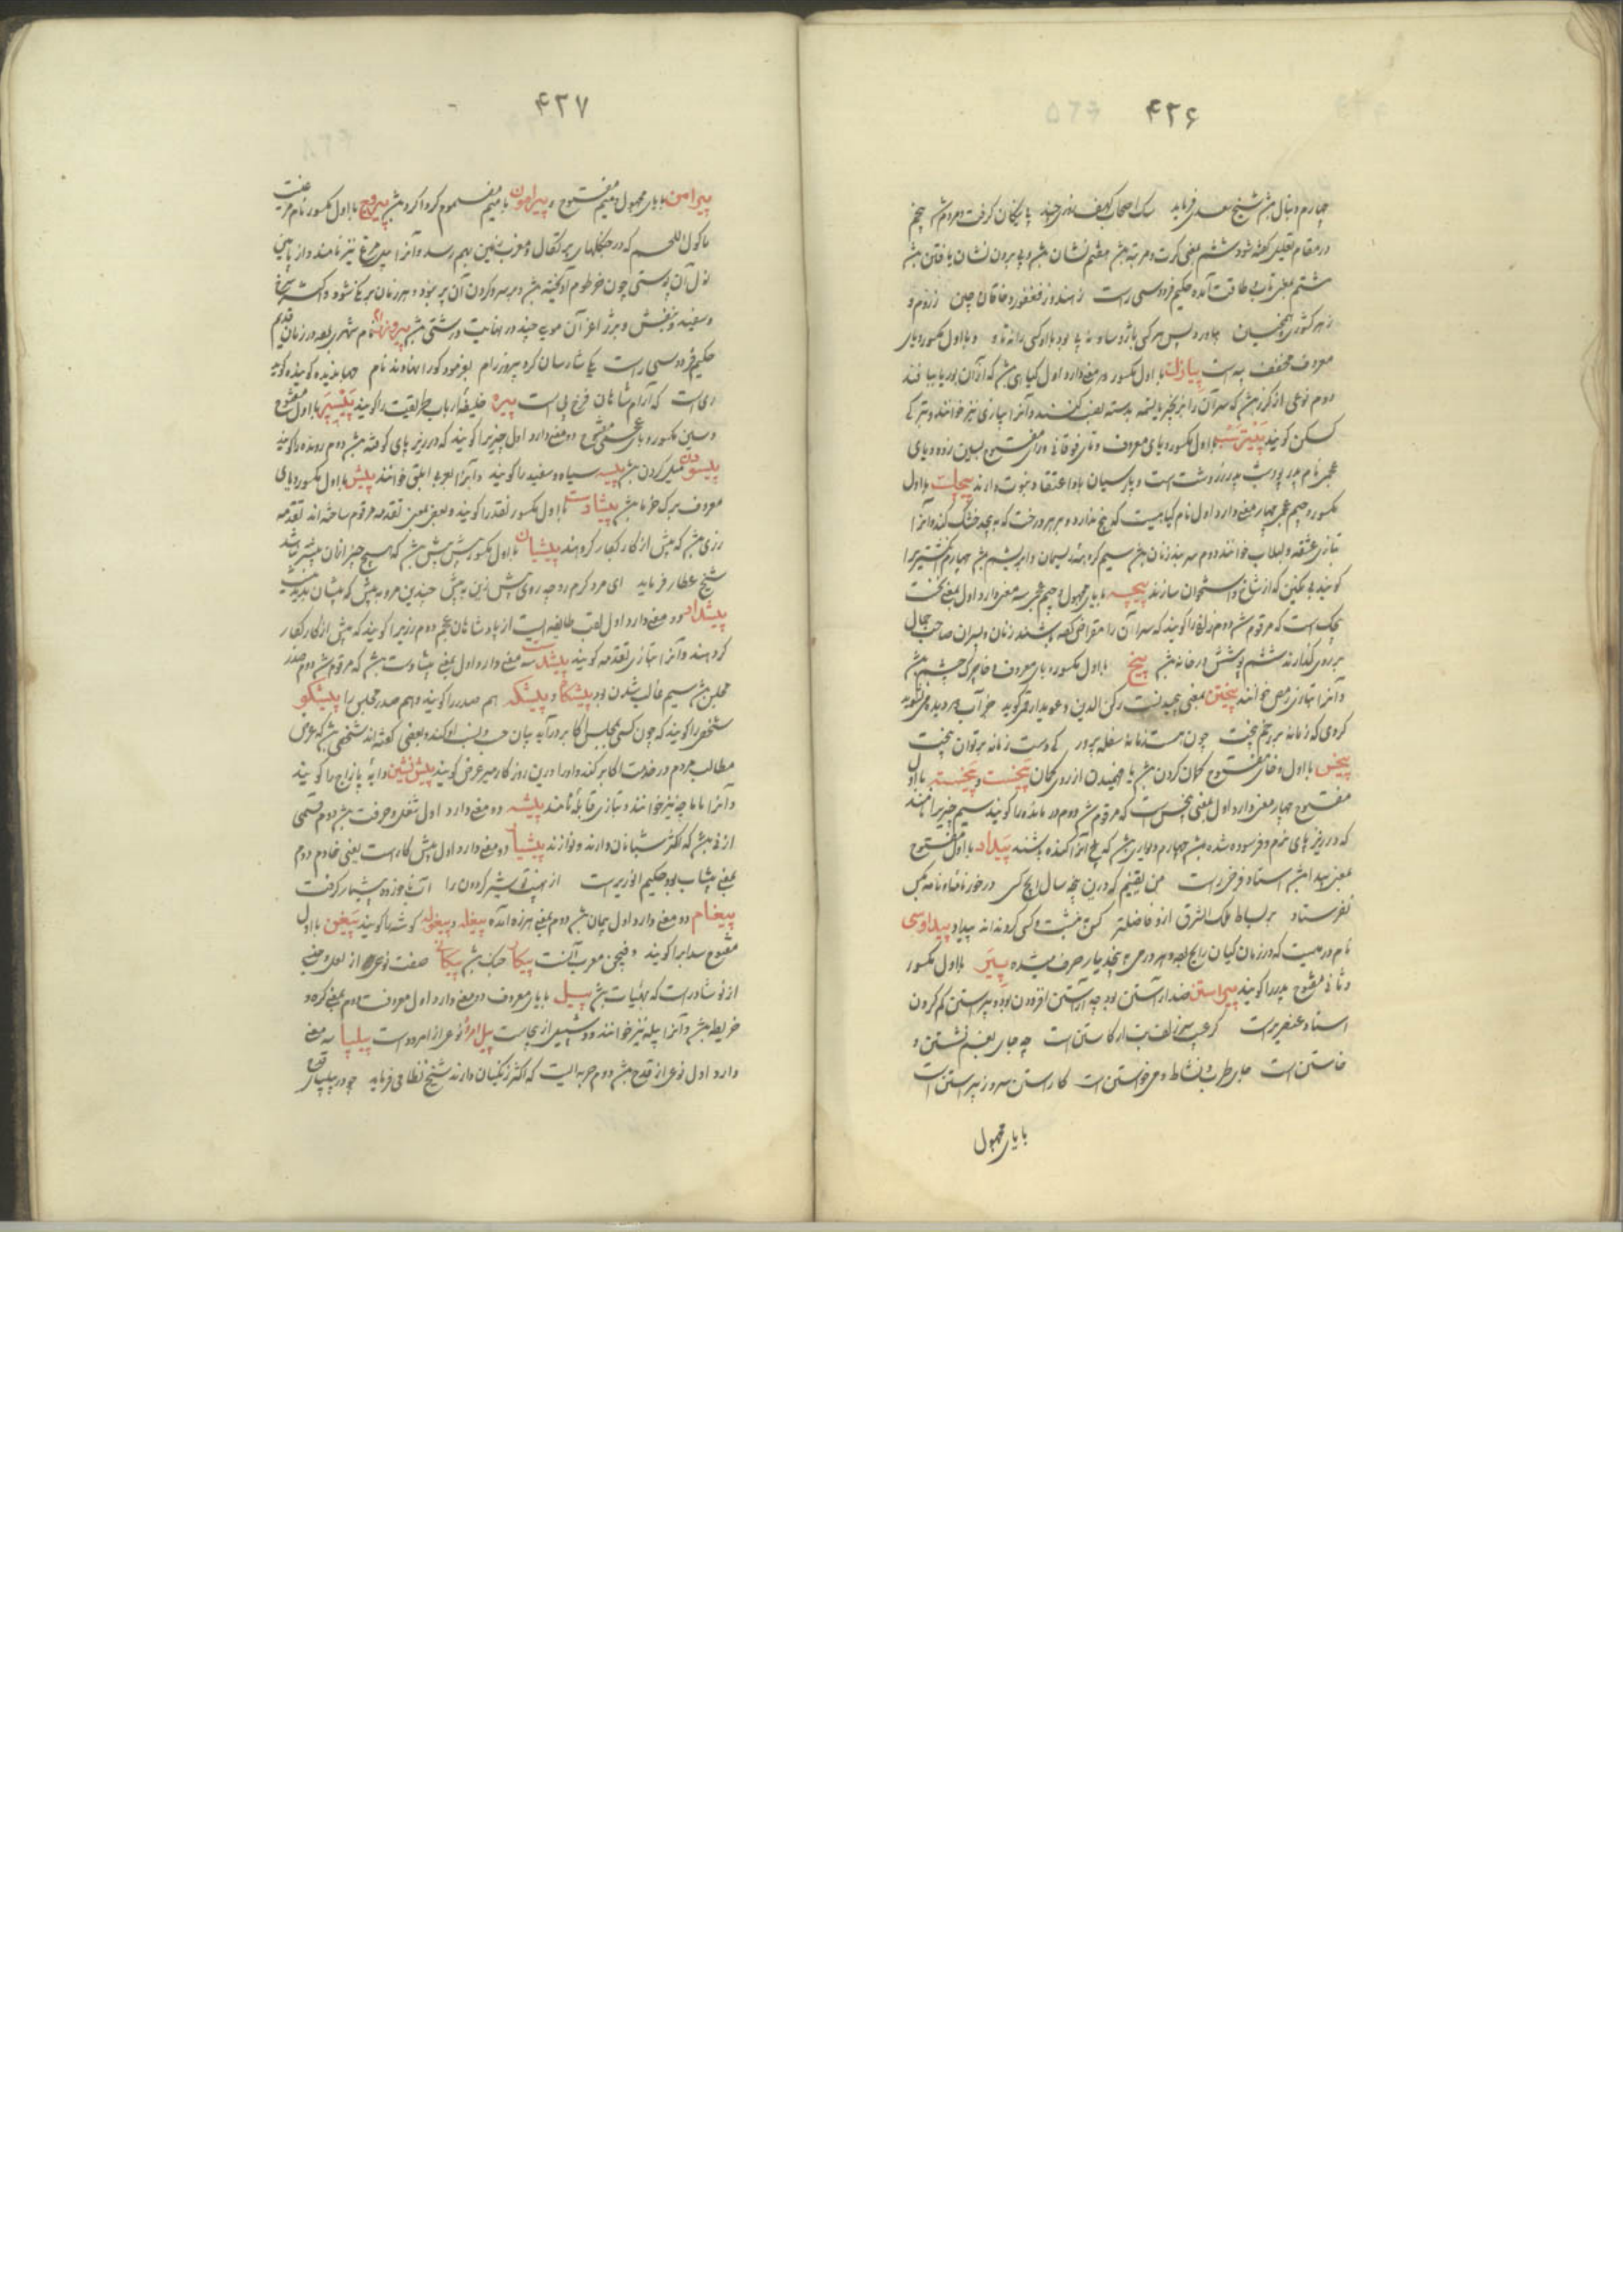 ۴۲۶
چهارم دنبال باشد شیخ سعدی فرماید سک اصحاب کهف روزی چند پی نیکان کرفت و مردم شد پنجم
در مقام تعلیل کفته شود ششم بمعنی کرت و مرتبه باشد هفتم نشان باشد و پی بردن نشان یافتن باشد
هشتم بمعنی تاب و طاقت آمده حکیم فردوسی راست ز هند و ز فغفور و خاقان چین ز روم و
ز هر کشوری همچنین
معروف مخفف پیه است پیازک با اول مکسور دو معنی دارد اول کیاهی باشد که از آن بوریا بافند
دوم نوعی از کرز باشد که سر آن را بزنجیر یا تسمه بدسته نصب کنند و آنرا بتازی نیز خوانند و بترکی
کسکن کویند با اول مکسور و یای معروف و تای فوقانی و رای مفتوح بسین زده و بای
عجمی نام پدر پوردشت پدر زردشت است و پارسیان باو اعتقاد نبوت دارند پیچک با اول
مکسور و جیم عجمی چهار معنی دارد اول نام کیاهیست که بیخ ندارد و بر هر درخت که به پیچد خشک کند و آنرا
بتازی عشقه و لبلاب خوانند دوم سربند زنان باشد سیم کروهه ریسمان و ابریشم باشد چهارم انکشتریرا
کویند بی نکین که از شاخ و استخوان سازند پیچه با یای مجهول و جیم عجمی سه معنی دارد اول بمعنی نخست
پیچک است که مرقوم شد دوم زلفی را کویند که سر آن را مقراض کرده باشند زنان و پسران صاحب جمال
بر روی گذارند ششم پوشش در خانه باشد پیخ با اول مکسور و یای معروف و خا چرک چشم باشد
و آنرا بتازی رمص خوانند پیختن بمعنی پیچیدنست رکن الدین دعویدار قمی کوید
کردی که زمانه بر رخم پیخت چون هست زمانه سفله پرور کی دست زمانه بر توان پیخت
پیخس با اول و خای مفتوح
مفتوح چهار معنی دارد اول بمعنی پیخس است که مرقوم شد دوم درمانده را کویند سیم چیزیرا نامند
که در زیر پای نرم و فرسوده شده باشد چهارم دیواری باشد که پی آنرا کنده باشند پیداد با اول مفتوح
بمعنی پیدا باشد استاد فرخی راست من یقینم که درین پنجه سال ایچ کسی درخور نامه او نامه بکس
نفرستاد بر بساط ملک الشرق ازو فاضلتر کس نبشت و کسی کرد نداند پیداد پیداوسی
نام درمیست که در زمان کیان رایج بوده و هر درمی به پنج دینار صرف میشده پیَر با اول مکسور
و ثانی مفتوح پدر را کویند پیراستن ضد آراستن بود چه آراستن افزودن بود و پیراستن کم کردن
استاد عنصری راست کر عیب سر زلف بت از کاستن است چه جای بغم نشستن و
خاستن است جای طرب و نشاط و می خواستن است کاراستن سرو ز پیراستن است
با یای مجهول
۴۲۷
پیرامن با یای مجهول و میم مفتوح و پیرامون با میم مضموم کرداکرد باشد پیروج با اول مکسور نام مرغیست
ماکول اللحم که در جنکلهای پرتکال و مغرب زمین بهم رسد و آنرا پیل مرغ نیز نامند و از پایین
نول آن پوستی چون خرطوم آویخته باشد و بر سر و کردن آن پر نبود و هر زمان برنکی شود و اکثر سرخ
و سفید و بنفش و سبز شود از آن مویی چند در نهایت درشتی باشد نام شهری بوده در زمان قدیم
حکیم فردوسی راست یکی شارسان کرد پیروز رام بفرمود کورا نهادند نام جهاندیده کوینده کوید
ری است که آرام شاهان فرخ پی است پیره خلیفهٔ ارباب طریقت را کویند با اول مفتوح
و سین مکسور و بای عجمی مفتوح دو معنی دارد اول چیزیرا کویند که در زیر پای کوفته باشد دوم رونده را کویند
پیسودن میل کردن باشد پیسه سیاه و سفید را کویند و آنرا بعربی ابلق خوانند پیش با اول مکسور و یای
معروف برک خرما باشد پیشادست با اول مکسور نقد را کویند و بعضی بمعنی تقدمه مرقوم ساخته اند تقدمه
زری باشد که پیش از کار بکار کر دهند پیشان با اول مکسور پیش پیش باشد که هیچ چیز از آن پیشتر نباشد
شیخ عطار فرماید
پیشداد دو معنی دارد اول لقب طایفه ایست از پادشاهان عجم دوم زریرا کویند که پیش از کار بکار کر
دهند و آنرا بتازی تقدمه کویند پیشدست سه معنی دارد اول بمعنی پیشادست باشد که مرقوم شد دوم صدر
مجلس باشد سیم غالب شدن بود پیشکاه و پیشکه هم صدر را کویند و هم صدر مجلس را پیشکو
شخصی را کویند که چون کسی بمجلس اکابر درآید بیان حسب و نسب او کند و بعضی کفته اند شخصی باشد که عرض
مطالب مردم در خدمت اکابر کند و او را درین روزکار میر عرض کویند پیش نشین دایهٔ پازاج را کویند
و آنرا ماماچه نیز خوانند و بتازی قابله نامند پیشه دو معنی دارد اول شغل و حرفت باشد دوم قسمی
از نی باشد که اکثر شبانان دارند و نوازند پیشیار دو معنی دارد اول پیش کار است یعنی خادم دوم
بمعنی پیشاب بود حکیم انوریراست از هیبت تو شیر کردون را
پیغام دو معنی دارد اول پیمان باشد دوم بمعنی هرزه آمده پیغله و پیغوله کوشه را کویند پیغن با اول
مفتوح سداب را کویند و فیجن معرب آنست پیکار جنک باشد پیکانی صفت نوعی از لعل و بمعنی
از نوشادر است که بهیات باشد پیل با یای معروف دو معنی دارد اول معروفست دوم بمعنی کره و
خریطه باشد و آنرا پیله نیز خوانند پیل امرود نوعی از امرود است پیلپا سه معنی
دارد اول نوعی از قدح باشد دوم حربه ایست که اکثر زنکیان دارند شیخ نظامی فرماید